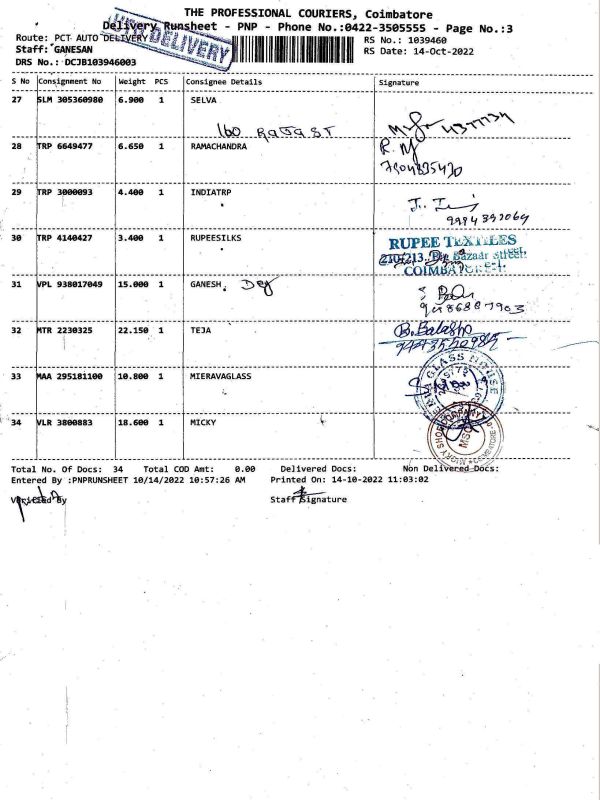 THE PROFESSIONAL COURIERS, Coimbatore
Delivery Runsheet - PNP - Phone No.:0422-3505555 - Page No.:3
Route: PCT AUTO DELIVERY
DELIVERY
RS No.: 1039460
Staff: GANESAN
RS Date: 14-Oct-2022
DRS No.: DCJB103946003
S No Consignment No Weight PCS Consignee Details Signature
27 SLM 305360980 6.900 1 SELVA
160 RAJA ST
28 TRP 6649477 6.650 1 RAMACHANDRA
R.M
29 TRP 3000093 4.400 1 INDIATRP
9994397069
30 TRP 4140427 3.400 1 RUPEESILKS
RUPEE TEXTILES
210-213, Big Bazaar Street,
COIMBATORE-1.
31 VPL 938017049 15.000 1 GANESH
32 MTR 2230325 22.150 1 TEJA
33 MAA 295181100 10.800 1 MIERAVAGLASS
GLASS HOUSE
34 VLR 3800883 18.600 1 MICKY
Total No. Of Docs: 34 Total COD Amt: 0.00 Delivered Docs: Non Delivered Docs:
Entered By :PNPRUNSHEET 10/14/2022 10:57:26 AM Printed On: 14-10-2022 11:03:02
Verified By Staff Signature